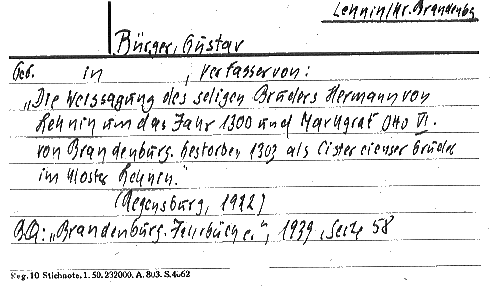 Lehnin/Kr. Brandenbg
Bürger, Gustav
Geb. in , Verfasser von:
„Die Weissagung des seligen Bruders Hermann von
Lehnin um das Jahr 1300 und Markgraf Otto VI.
von Brandenburg. Gestorben 1303 als Cistercienser Bruder
im Kloster Lehnin."
(Regensburg, 1922)
BQ: „Brandenburg. Jahrbüche.", 1939, Seite 58
Reg. 10 Stichnote. 1. 50. 232000. A. 803. S. 4062